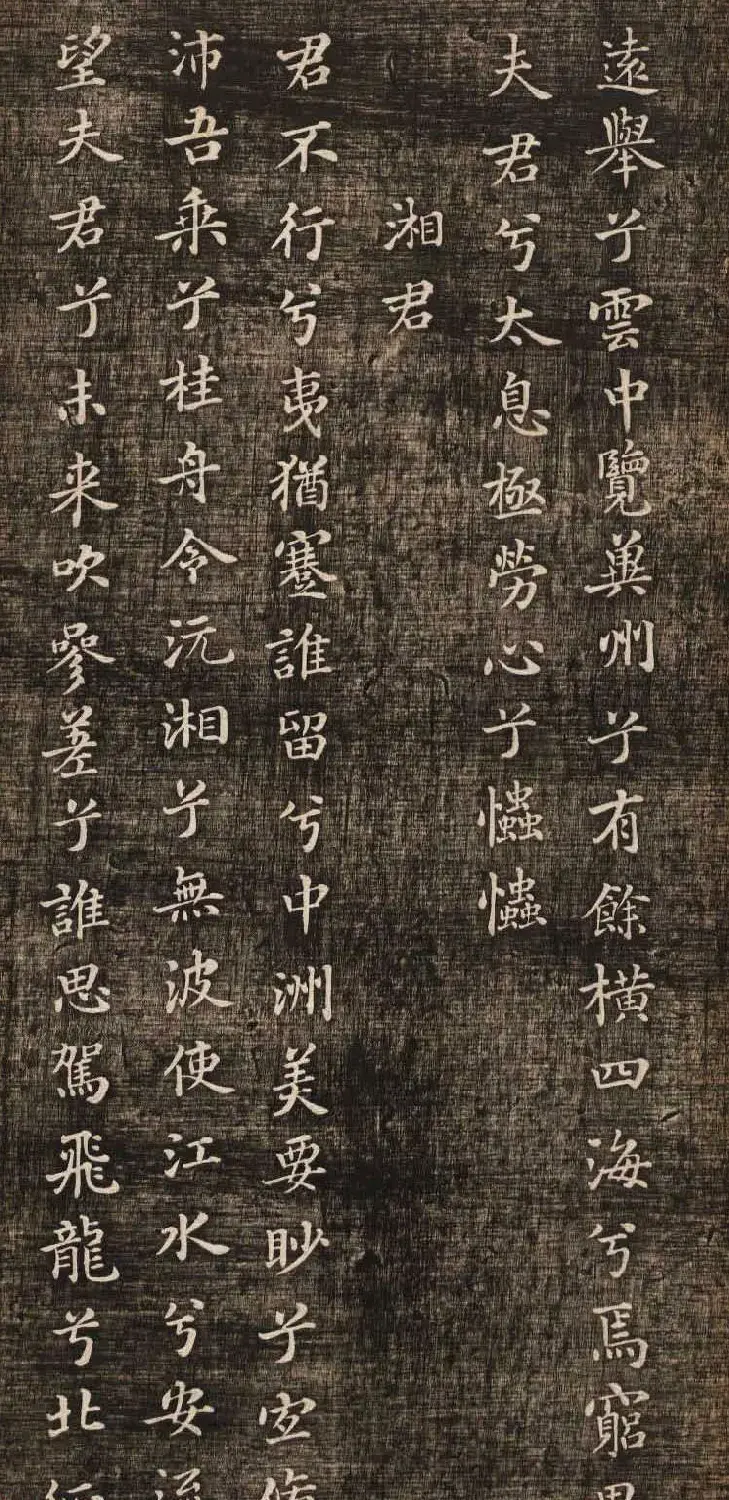 遠舉兮雲中覽冀州兮有餘橫四海兮焉窮思
夫君兮太息極勞心兮忡忡
湘君
君不行兮夷猶蹇誰留兮中洲美要眇兮宜修
沛吾乘兮桂舟令沅湘兮無波使江水兮安流
望夫君兮未來吹參差兮誰思駕飛龍兮北